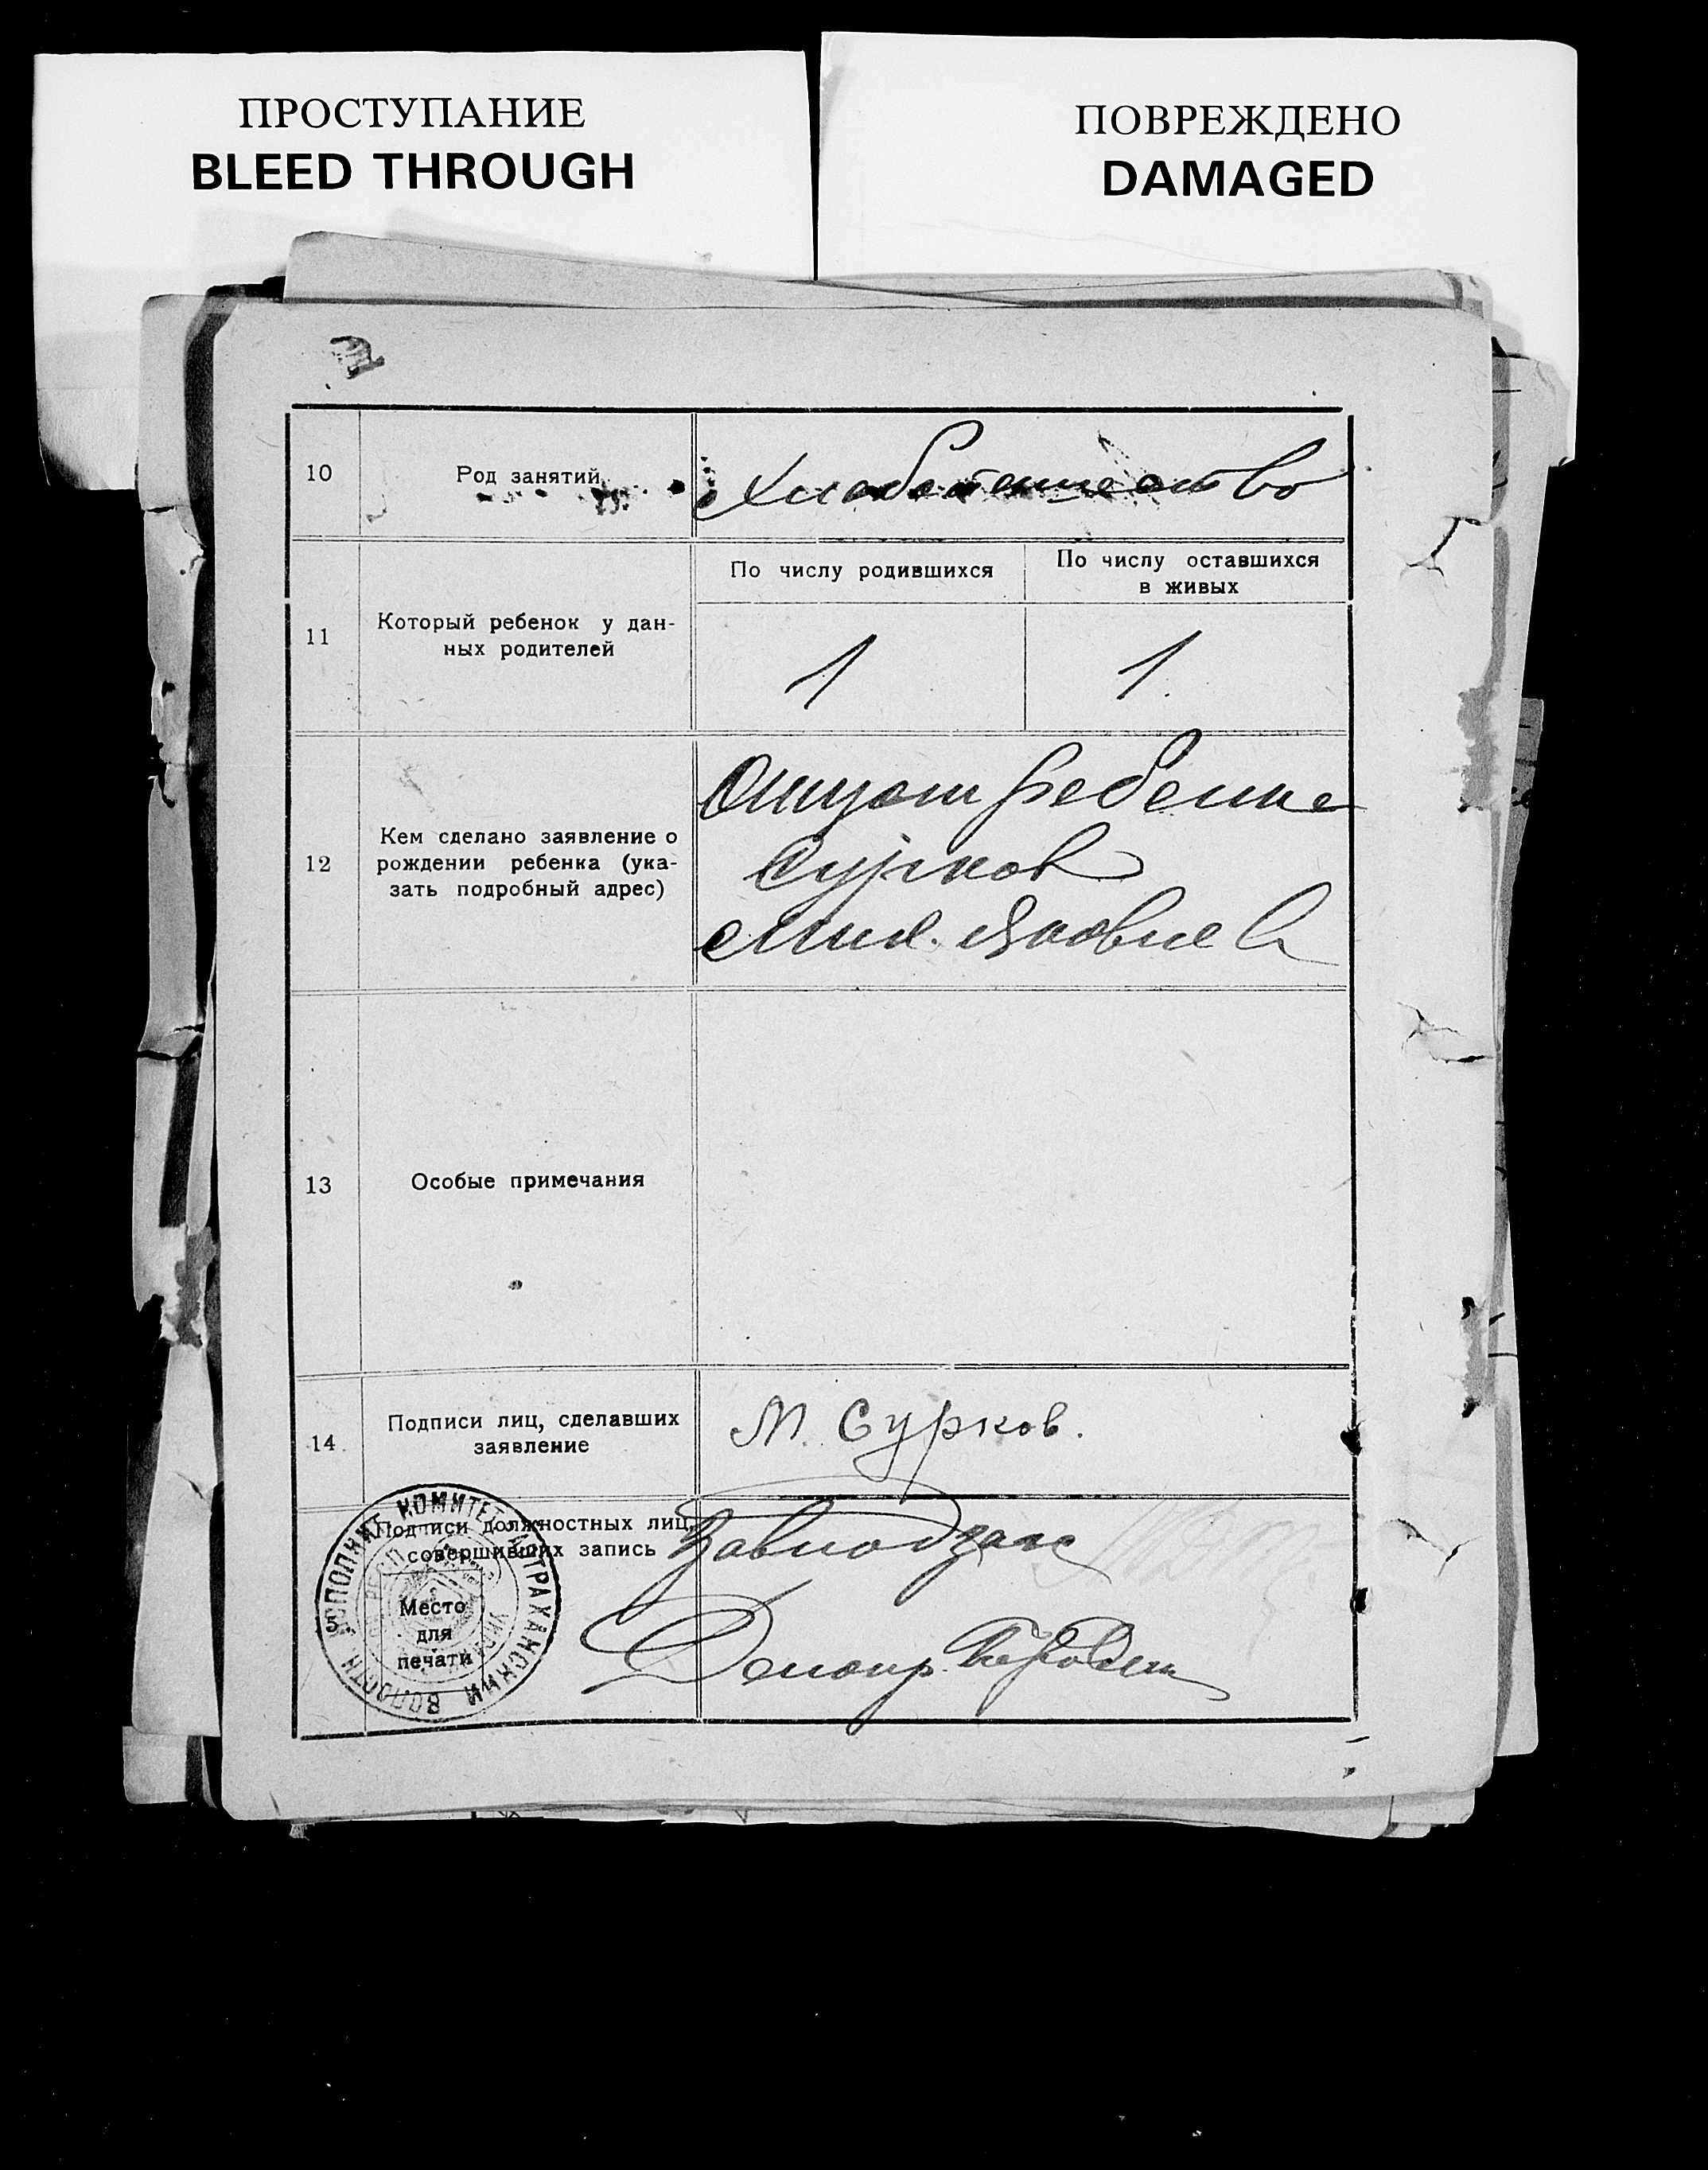 ПРОСТУПАНИЕ
BLEED THROUGH
ПОВРЕЖДЕНО
DAMAGED
10
Род занятий
Хлебопашество
11
Который ребенок у дан-
ных родителей
По числу родившихся
По числу оставшихся
в живых
1
1
12
Кем сделано заявление о
рождении ребенка (ука-
зать подробный адрес)
Отцом ребенка
Сурков
Мих. Яковлев
13
Особые примечания
14
Подписи лиц, сделавших
заявление
М. Сурков.
Подписи должностных лиц,
совершивших запись
Завподзагс
5
Место
для
печати
Делопр.
ИСПОЛНИТ КОМИТЕТ АСТРАХАНСКИЙ ВОЛОСТН